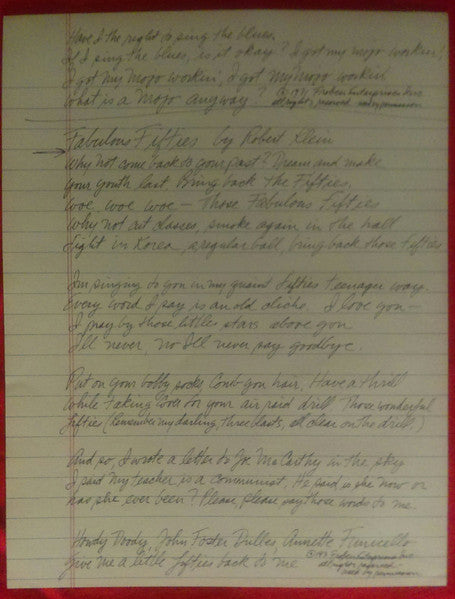 Have I the right to sing the blues.
If I sing the blues, is it okay? I got my mojo workin!
I got my mojo workin', I got my mojo workin
What is a Mojo anyway? © 1971 Enterprises Inc.
all rights reserved used by permission
Fabulous Fifties by Robert Klein
Why not come back to your past? Dream and make
your youth last Bring back the Fifties,
woe, woe woe — Those Fabulous Fifties
Why not cut classes, smoke again in the hall
Fight in Korea, a regular ball, bring back those Fifties
I'm singing to you in my quaint fifties teenager way.
Every word I say is an old cliche. I love you —
I pray by those little stars above you
I'll never, no I'll never say goodbye.
Put on your bobby socks Comb you hair, Have a thrill
While taking cover for your air raid drill Those wonderful
Fifties (Remember my darling three blasts, all clear on the drill)
And so, I wrote a letter to Joe McCarthy in the sky
I said My teacher is a communist. He said is she now or
has she ever been? Please, please say those words to me.
Howdy Doody, John Foster Dulles, Annette Funicello
Give me a little fifties back to me © Enterprises Inc
all rights reserved
used by permission